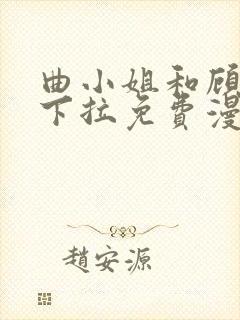 曲小姐和顾
下拉免費漫
趙安源